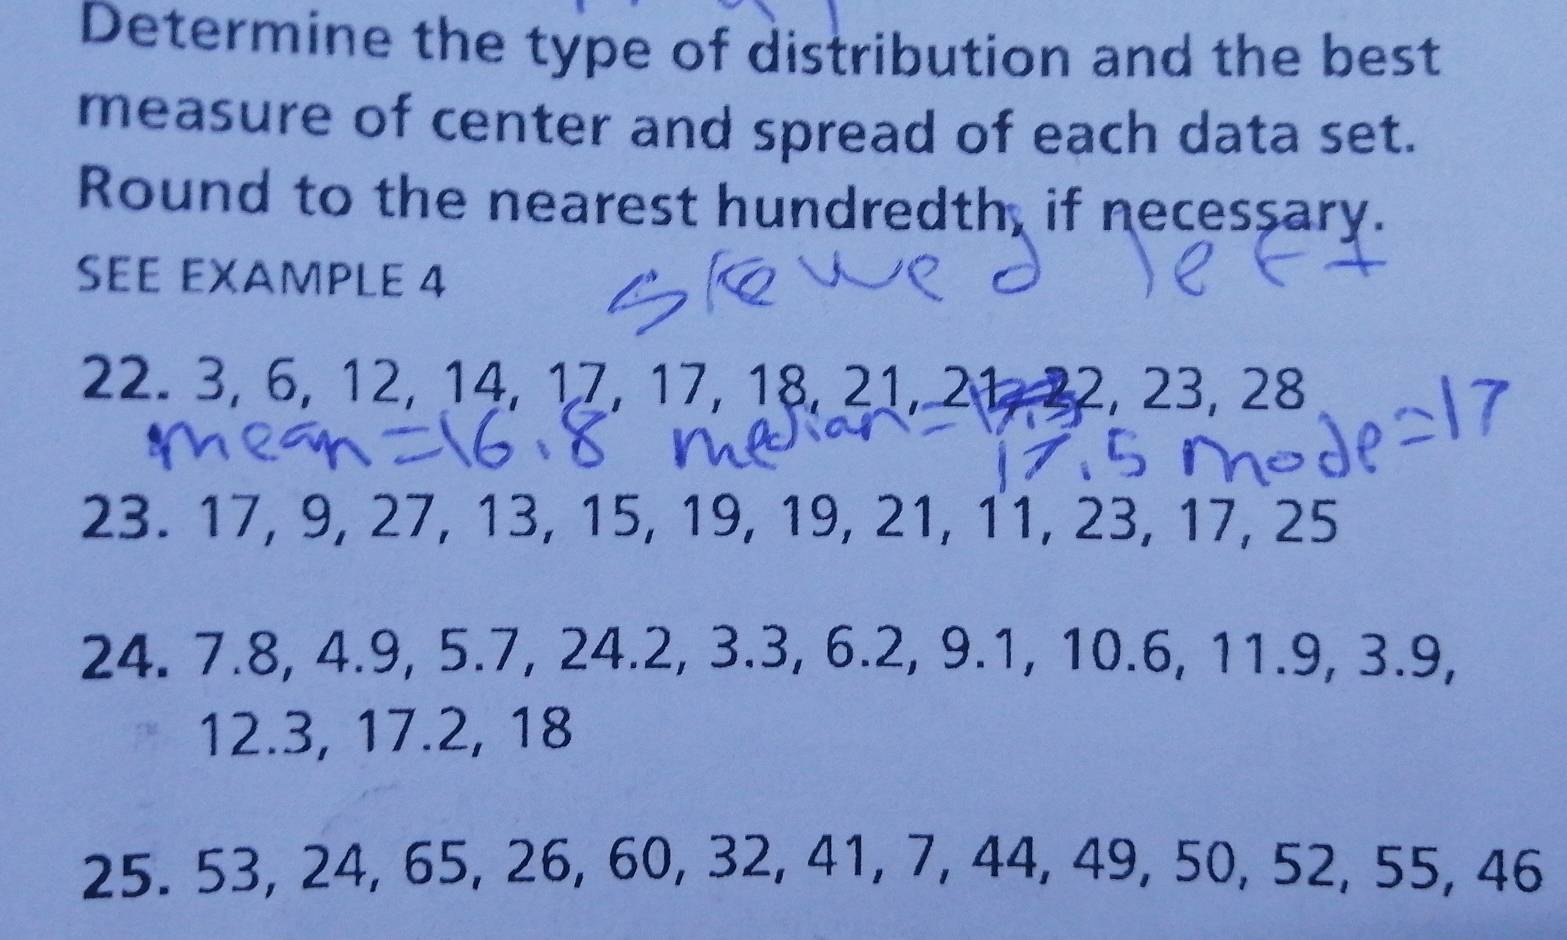 Determine the type of distribution and the best
measure of center and spread of each data set.
Round to the nearest hundredth, if necessary.
SEE EXAMPLE 4
skewed left
22. 3, 6, 12, 14, 17, 17, 18, 21, 21, 22, 23, 28
mean=16.8 median= 17.5 mode=17
23. 17, 9, 27, 13, 15, 19, 19, 21, 11, 23, 17, 25
24. 7.8, 4.9, 5.7, 24.2, 3.3, 6.2, 9.1, 10.6, 11.9, 3.9,
12.3, 17.2, 18
25. 53, 24, 65, 26, 60, 32, 41, 7, 44, 49, 50, 52, 55, 46